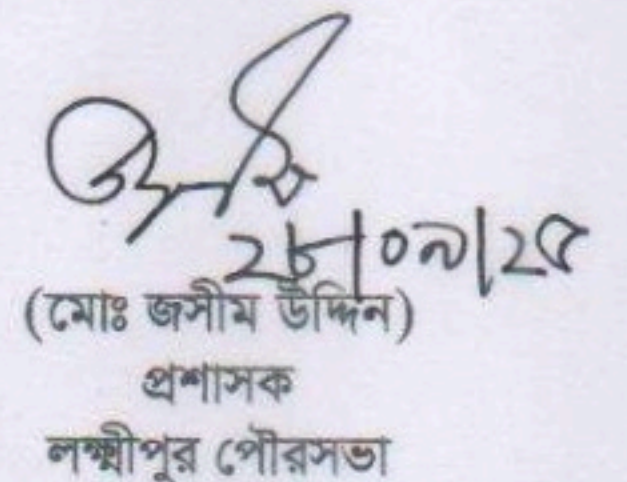 ২৮|০৯|২৫
(মোঃ জসীম উদ্দিন)
প্রশাসক
লক্ষ্মীপুর পৌরসভা